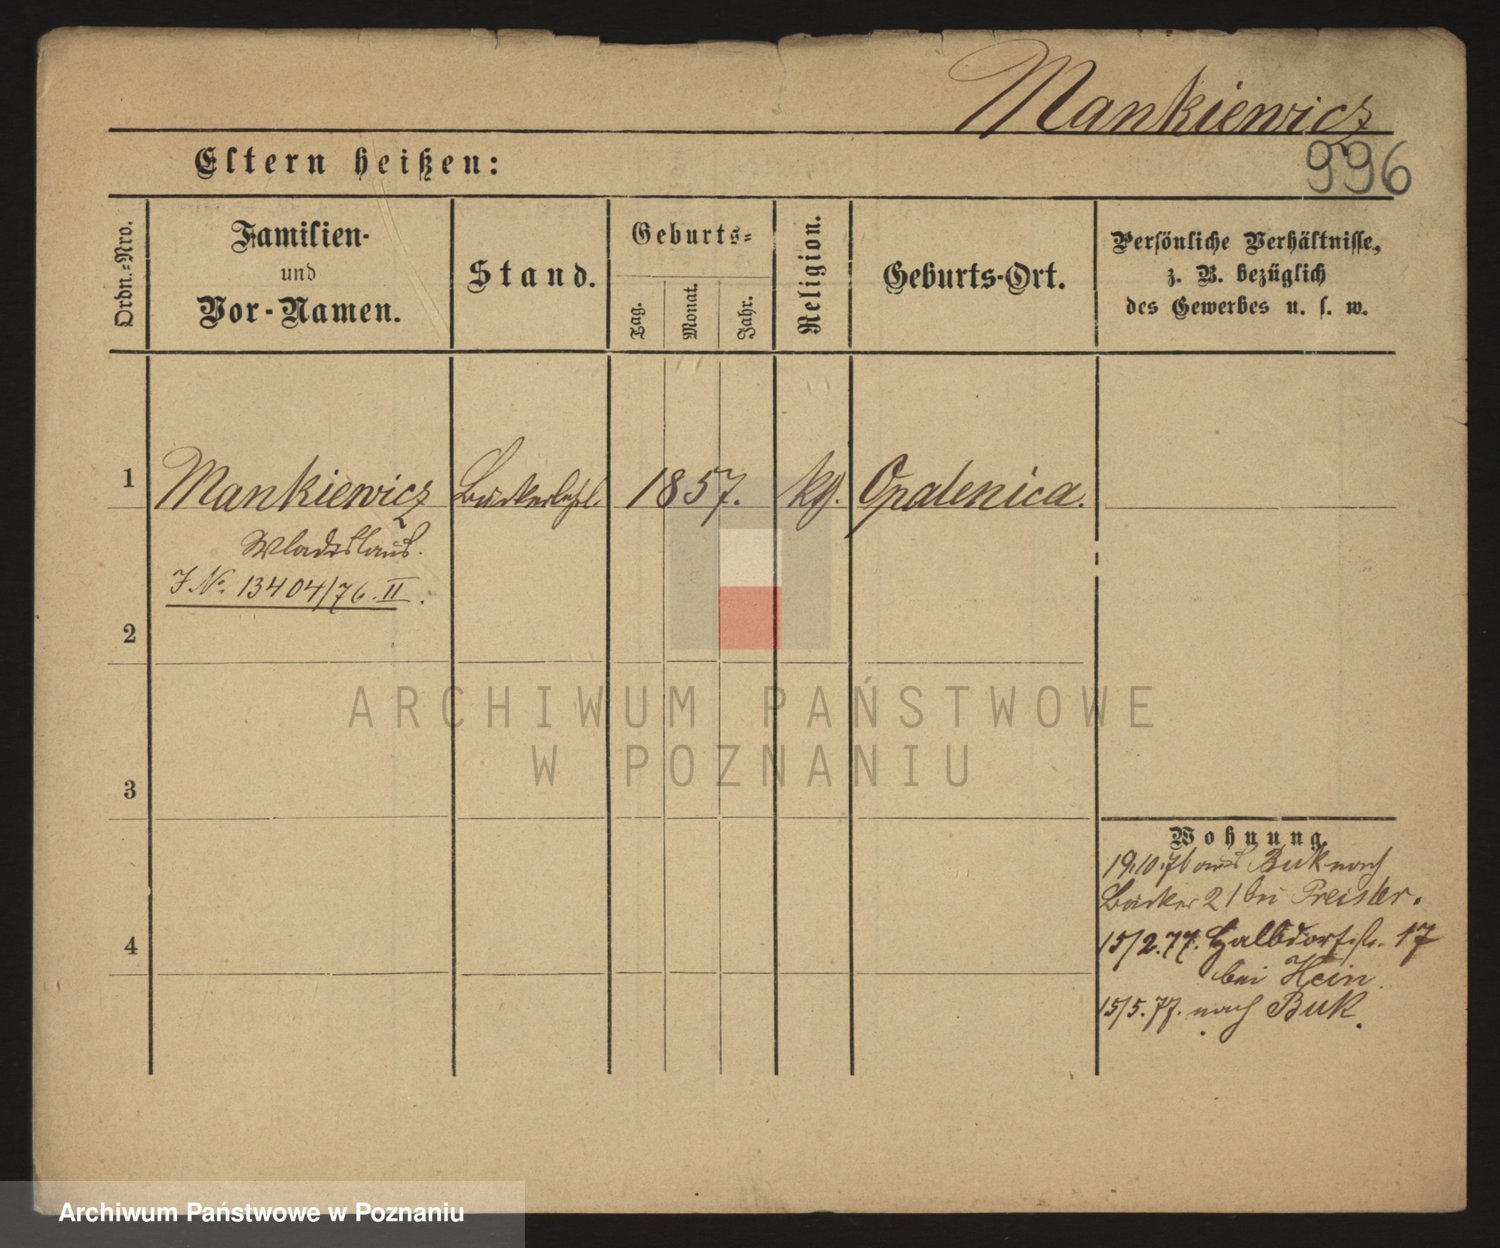 Mankiewicz
996
Eltern heißen:
Ordn.-Nro.
Familien-
und
Vor-Namen.
Stand.
Geburts-
Tag.
Monat.
Jahr.
Religion.
Geburts-Ort.
Persönliche Verhältnisse,
z. B. bezüglich
des Gewerbes u. s. w.
1
Mankiewicz
Bäckerlehrl.
1857.
kg.
Opalenica.
Wladislaus.
J.No. 13404/76.II.
2
ARCHIWUM PAŃSTWOWE
W POZNANIU
3
Wohnung
19.10.76 aus Buk nach
Bäcker 21 bei Preisler.
4
15/2.77. Halbdorfstr. 17
bei Hein.
15/5.77. nach Buk.
Archiwum Państwowe w Poznaniu